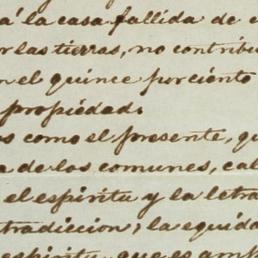 á la casa fallida de
las tierras, no contribu
el quince por ciento
propiedad.
como el presente, qu
de los comunes, cal
el espíritu y la letra
tradiccion; la equida
espiritu, que es amp